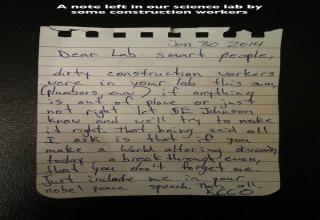 A note left in our science lab by
some construction workers
Jan 30 2014
Dear Lab smart people,
dirty construction workers
were in your lab this am,
(plumbers, eww) if anything
is out of place or just
not right let Johnson
know and we'll try to make
it right. That being said all
I ask is that if you
make a world altering discovery
today, a breakthrough even,
that you don't forget me.
Just include me in your
nobel peace speech. Thats all.
KCCO